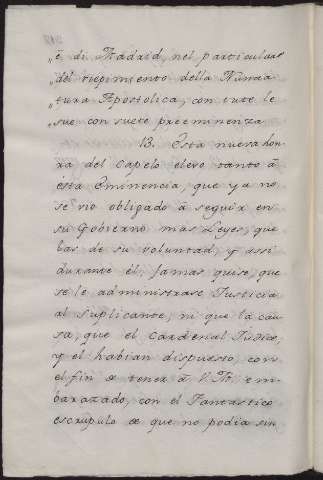 „ è di Madrid, nel particulare
„ del ricpimiento della Nuncia
„ tura Apostolica, con tute le
„ sue consuete preeminenza
13. Esta nueva hon
ra del Capelo elevò tanto à
esta Eminencia, que ya no
se viò obligado à seguir en
su Gobierno más Leyes, que
las de su voluntad, y assi
durante él, jamas quiso, que
se le administrase Justicia
al Suplicante, ni que la cau
sa, que el Cardenal Judice,
y el habian dispuesto, con
el fin de tener à V. M. em
barazado, con el Fantastico
escrupulo de que no podia sin